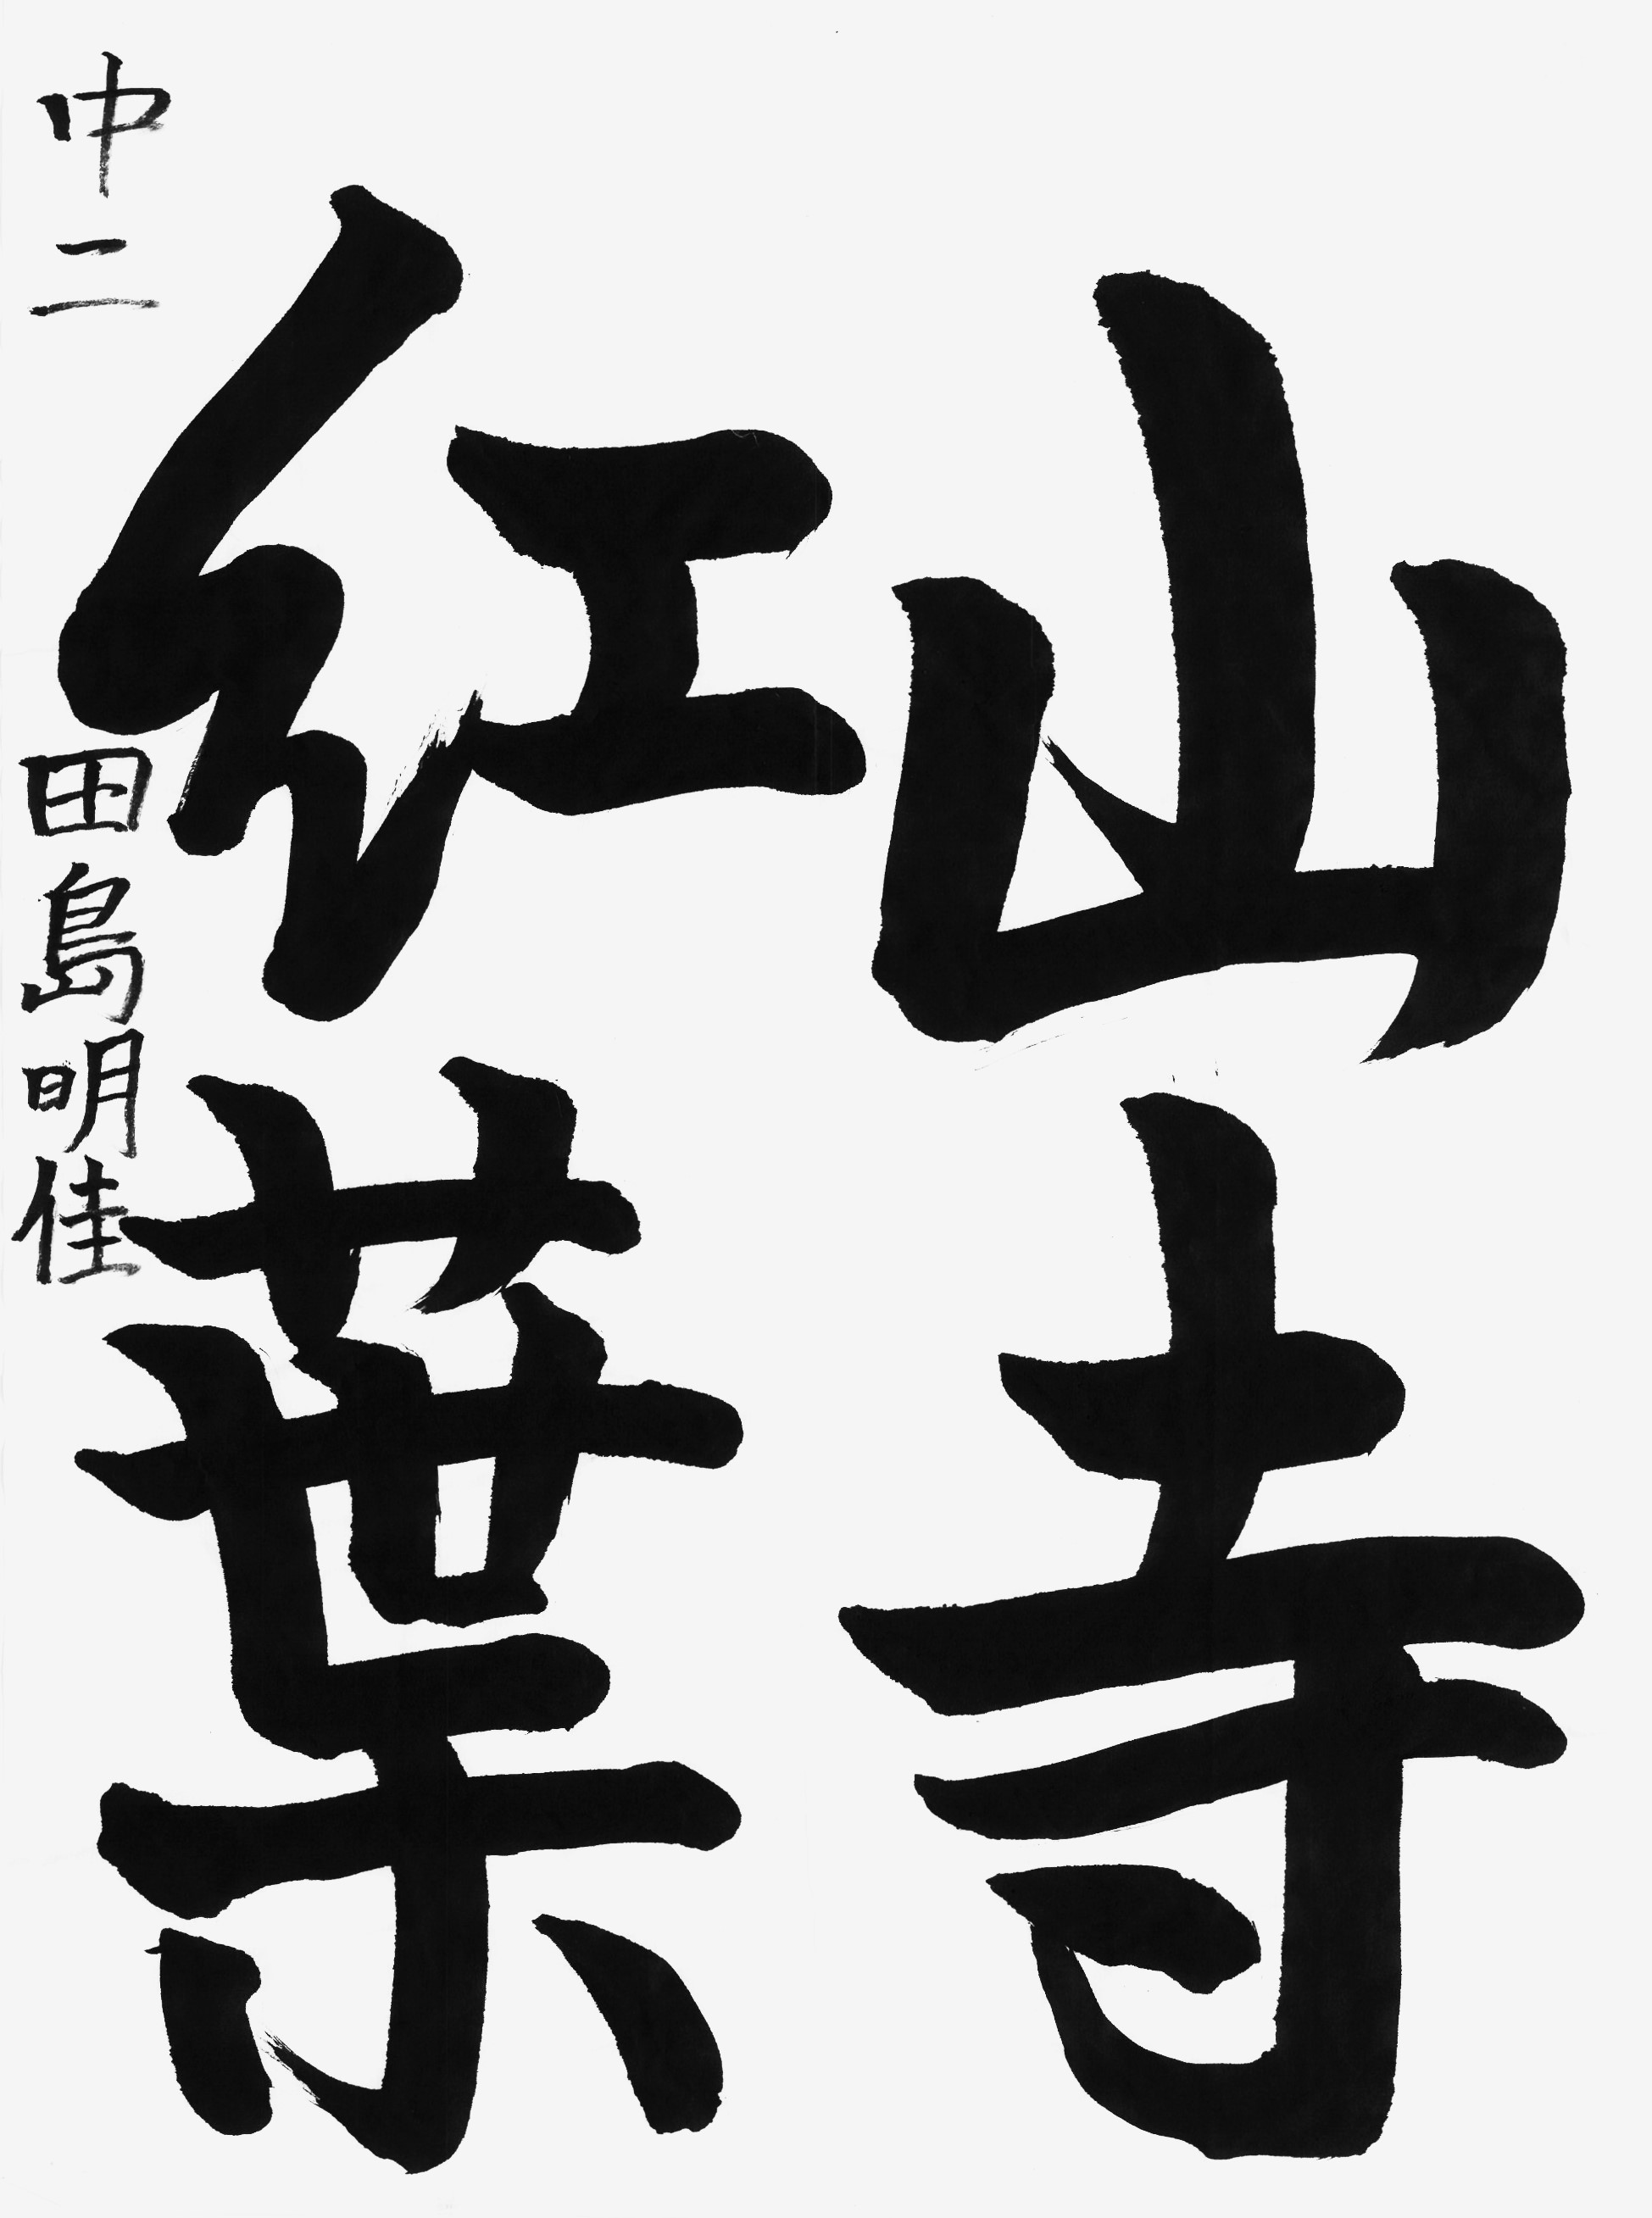 山寺
紅葉
中二 田島明佳